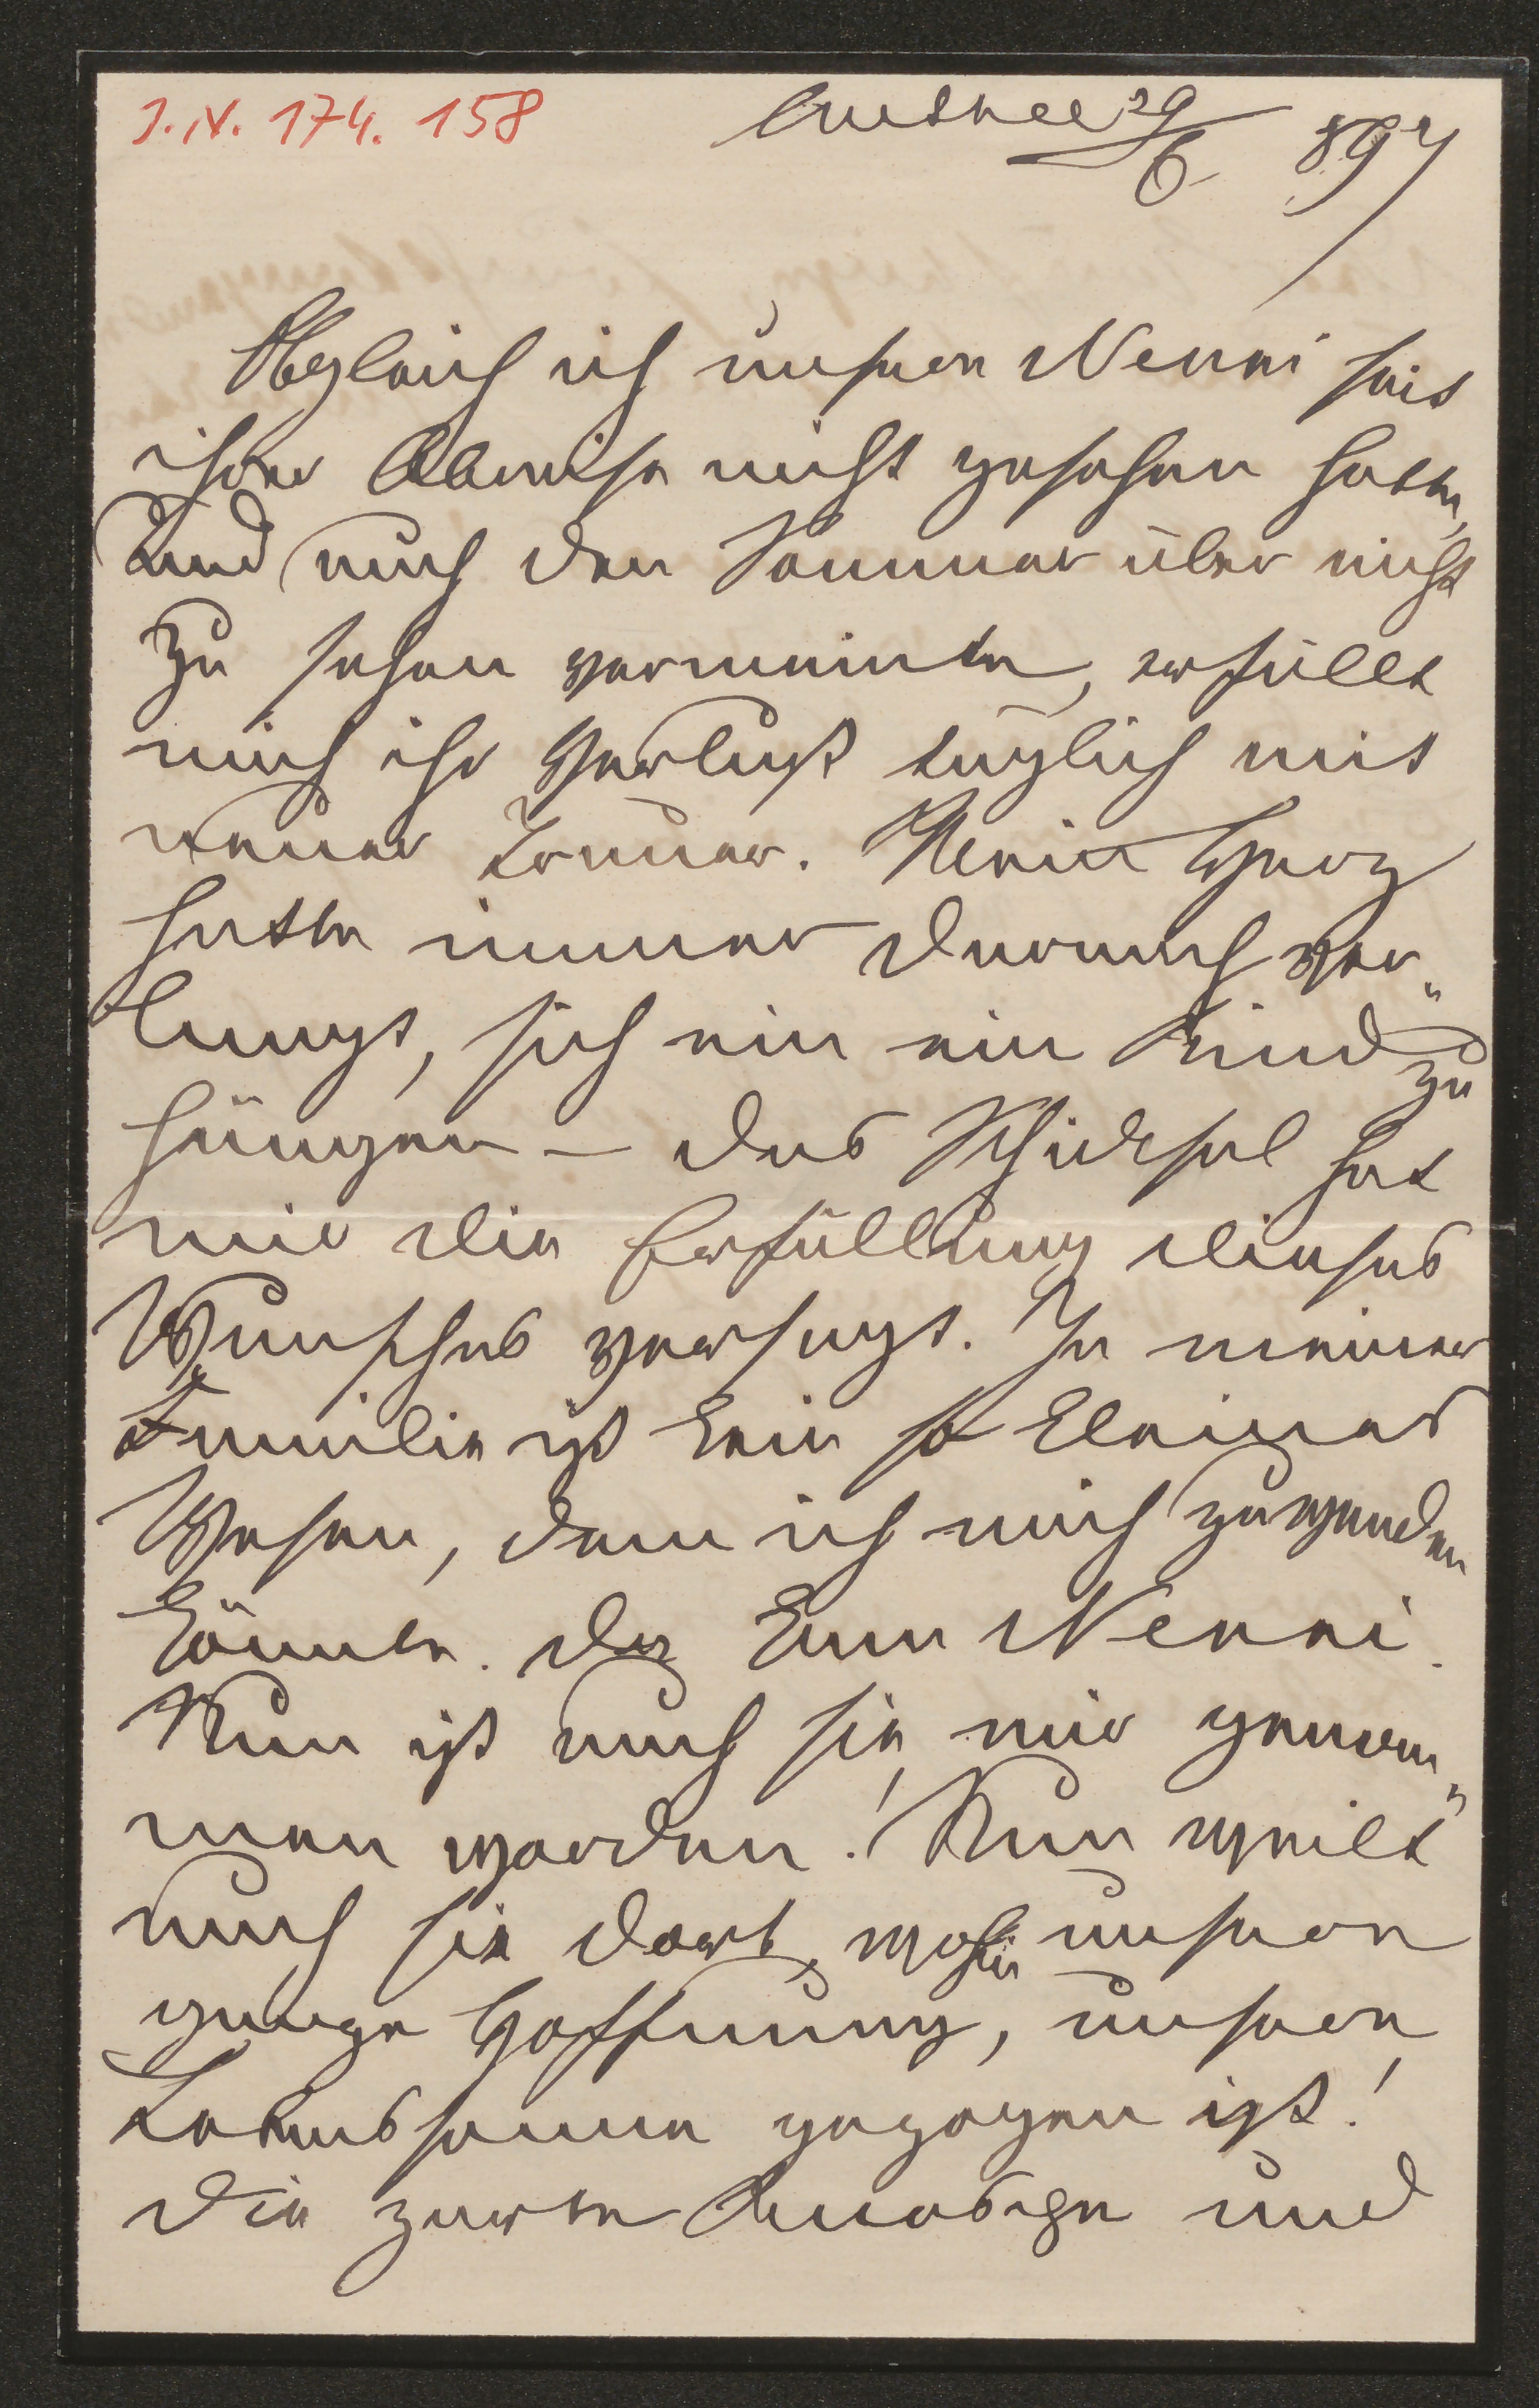 I.N. 174.158
Aussee 29/6 897
Obgleich ich unsere Nenni seit
ihrer Abreise nicht gesehen hatte,
und auch den Sommer über nicht
zu sehen vermeinte, erfüllt
mich ihr Verlust täglich mit
neuer Trauer. Mein Herz
hatte immer darnach ver„
langt, sich an ein Kind zu
hängen – das Schicksal hat
mir die Erfüllung dieses
Wunsches versagt. In meiner
Familie ist kein so kleines
Wesen, dem ich mich zuwenden
könnte. Da kam Nenni.
Nun ist auch sie mir genom„
men worden! Nun weilt
auch sie dort, wohin unsere
ganze Hoffnung, unsere
Lebenssonne gezogen ist!
Die zarte Knospe und